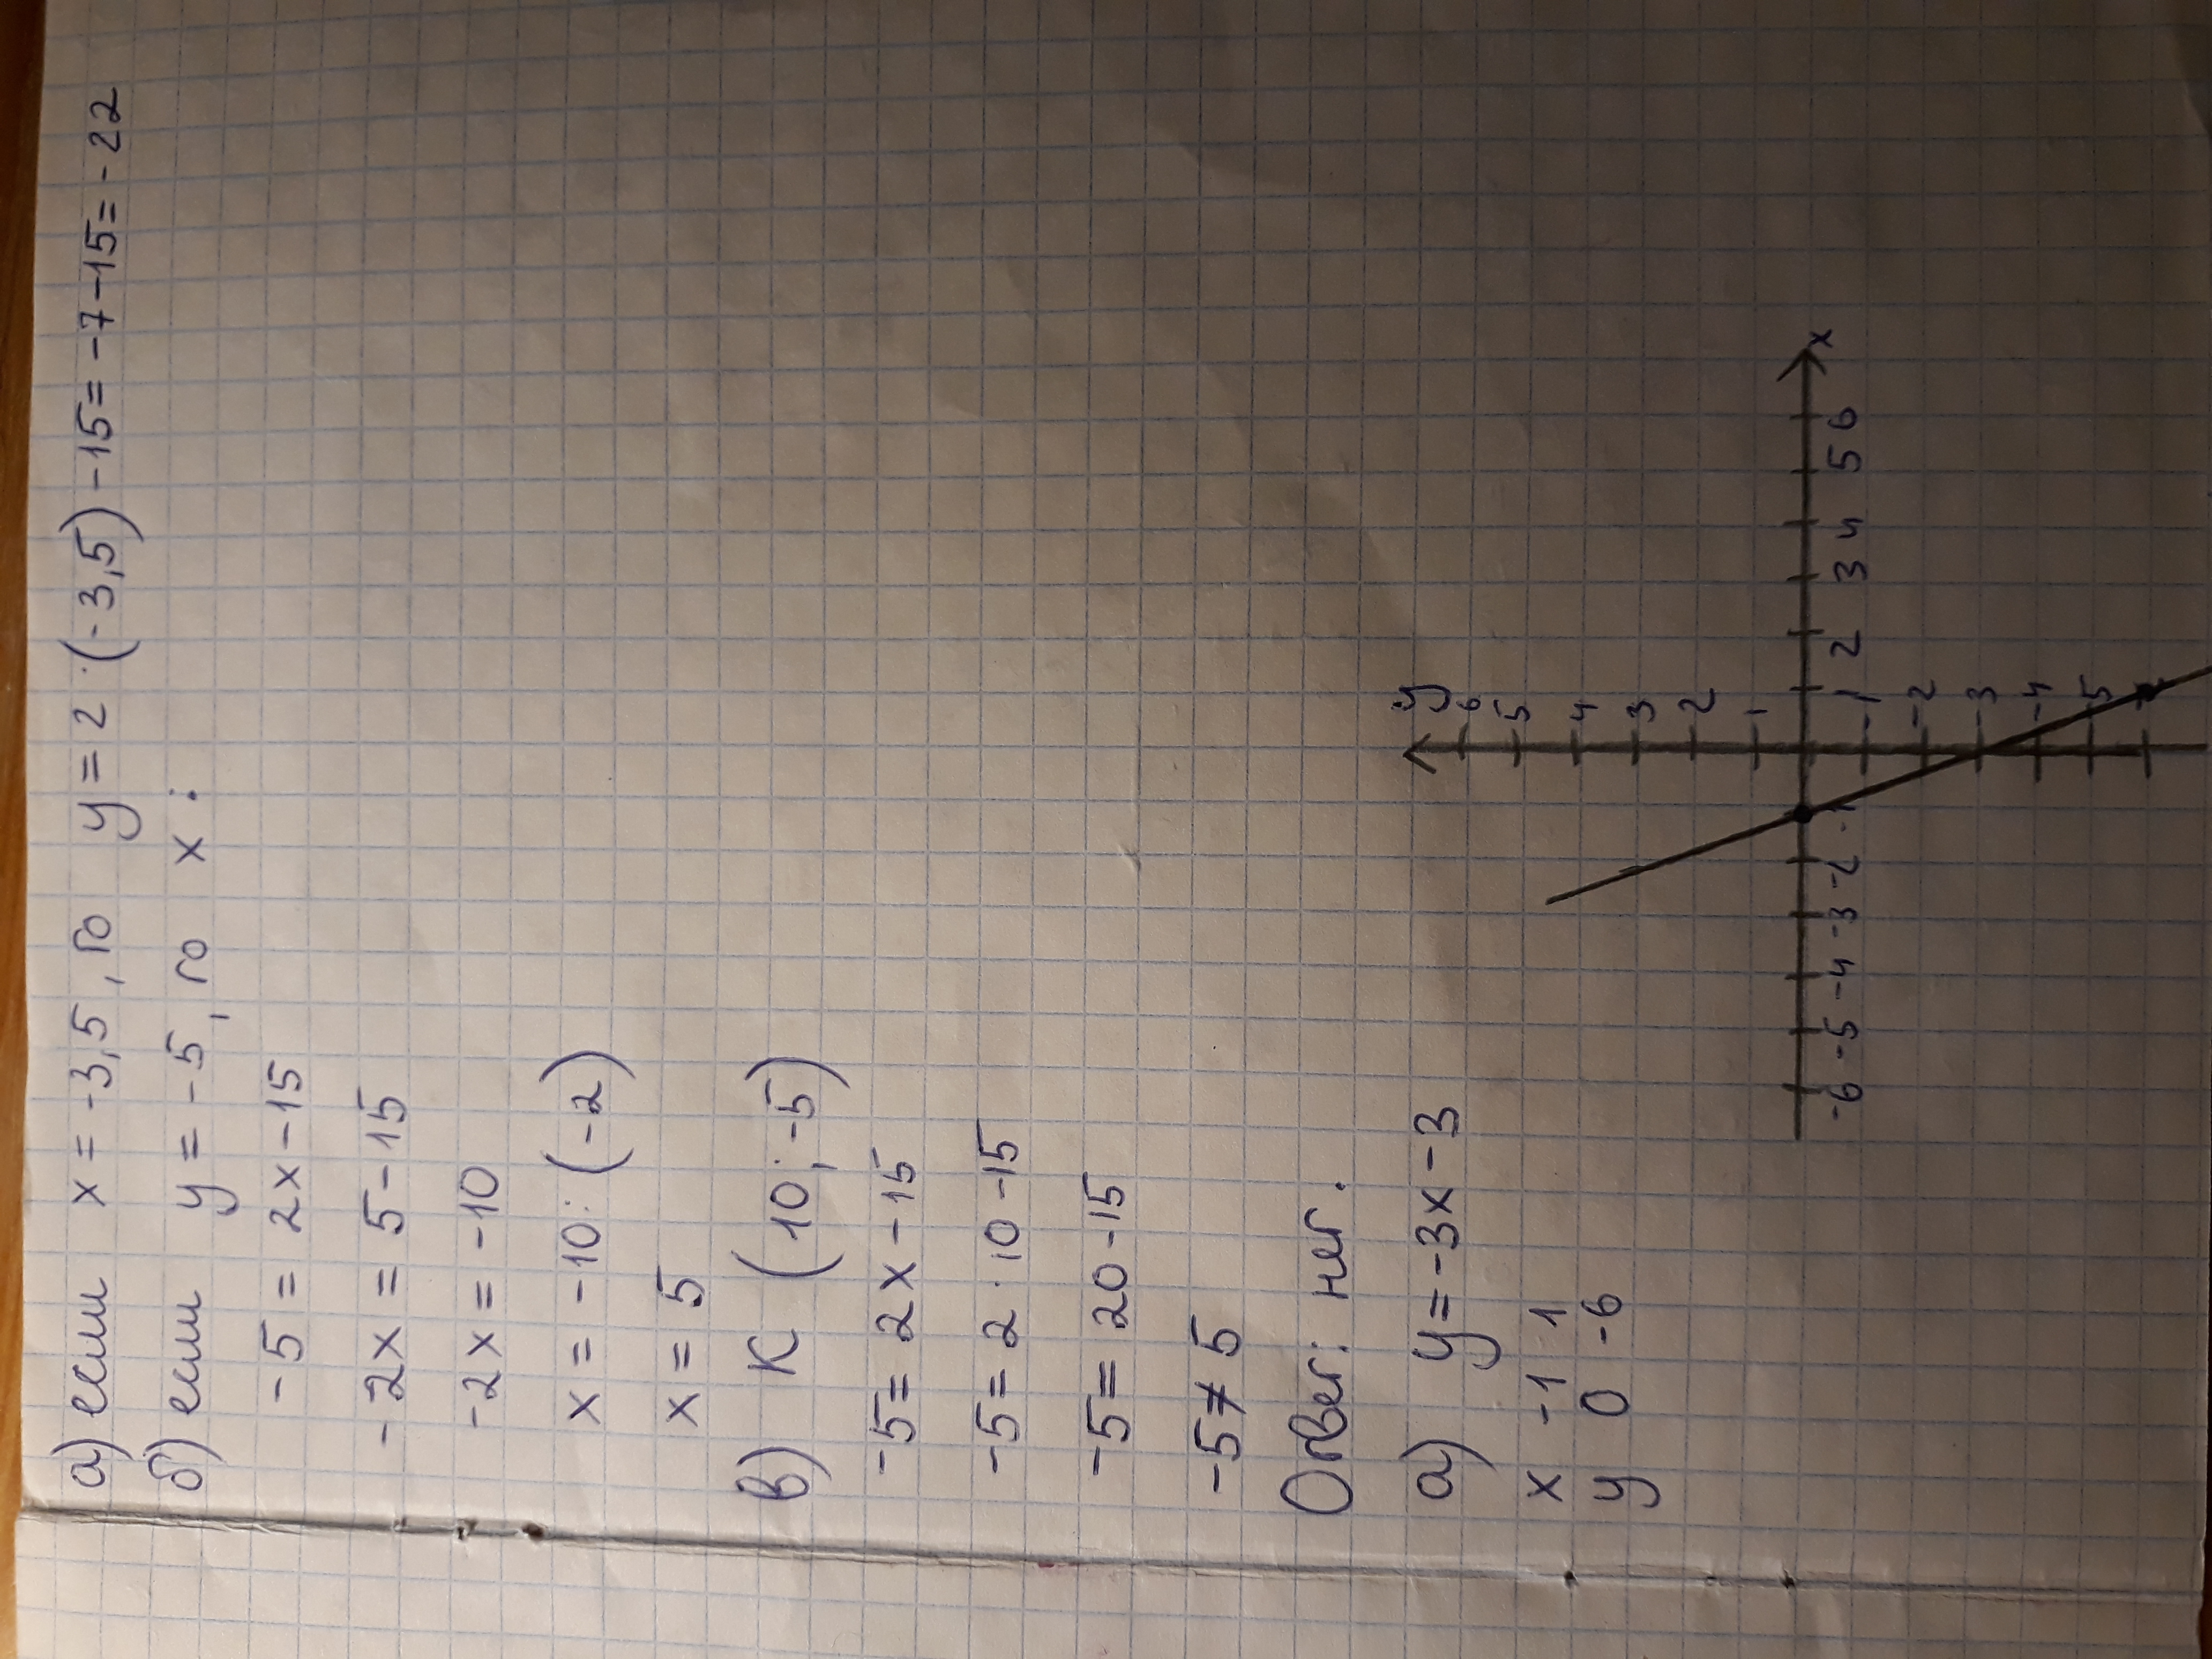 а) если x = -3,5, то y = 2 · (-3,5) - 15 = -7 - 15 = -22
б) если y = -5, то x :
-5 = 2x - 15
-2x = 5 - 15
-2x = -10
x = -10 : (-2)
x = 5
в) К (10; -5)
-5 = 2x - 15
-5 = 2 · 10 - 15
-5 = 20 - 15
-5 ≠ 5
Ответ: нет.
а) y = -3x - 3
x -1 1
y 0 -6
y
6
5
4
3
2
1
-6 -5 -4 -3 -2 -1 1 2 3 4 5 6 x
-1
-2
-3
-4
-5